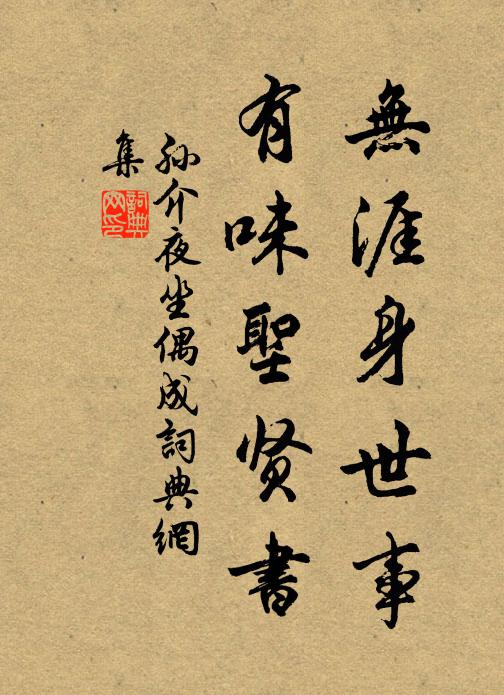 無涯身世事
有味聖贤書
孙介夜坐偶成詞典網
集
詞典
网印